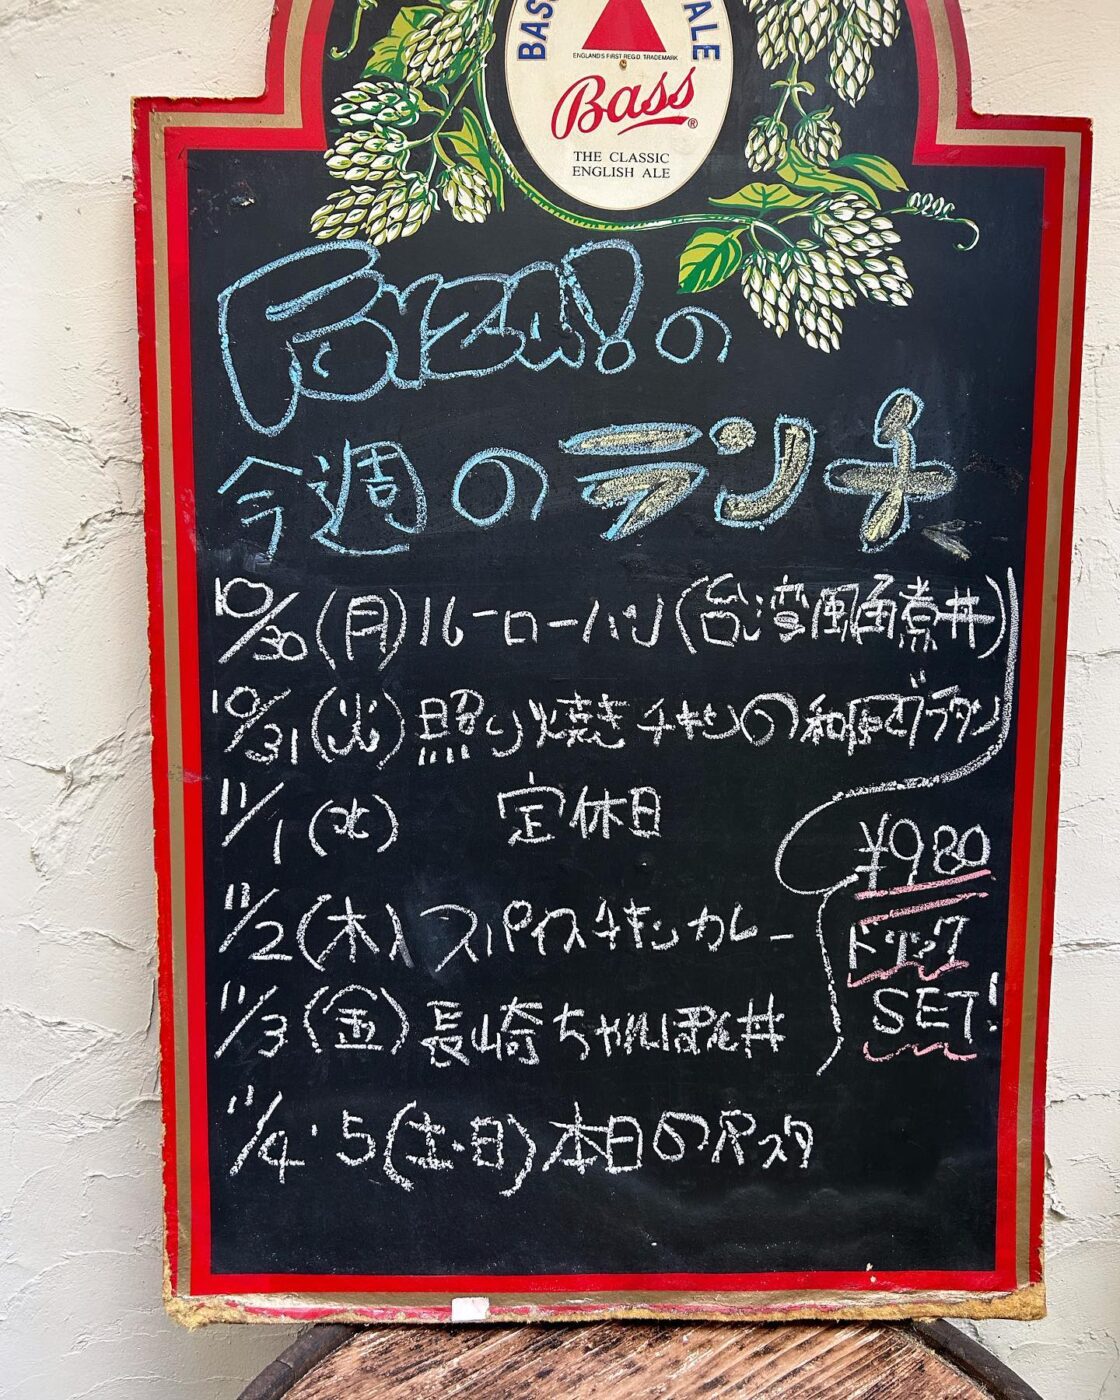 BASS ALE
ENGLAND'S FIRST REGD. TRADEMARK
Bass®
THE CLASSIC
ENGLISH ALE
Forza!の
今週のランチ
10/30(月)ルーローハン(台湾風角煮丼)
10/31(火)照り焼きチキンの和風グラタン
11/1(水) 定休日
11/2(木)スパイスチキンカレー
11/3(金)長崎ちゃんぽん丼
11/4・5(土・日)本日のパスタ
¥980
ドリンク
SET!